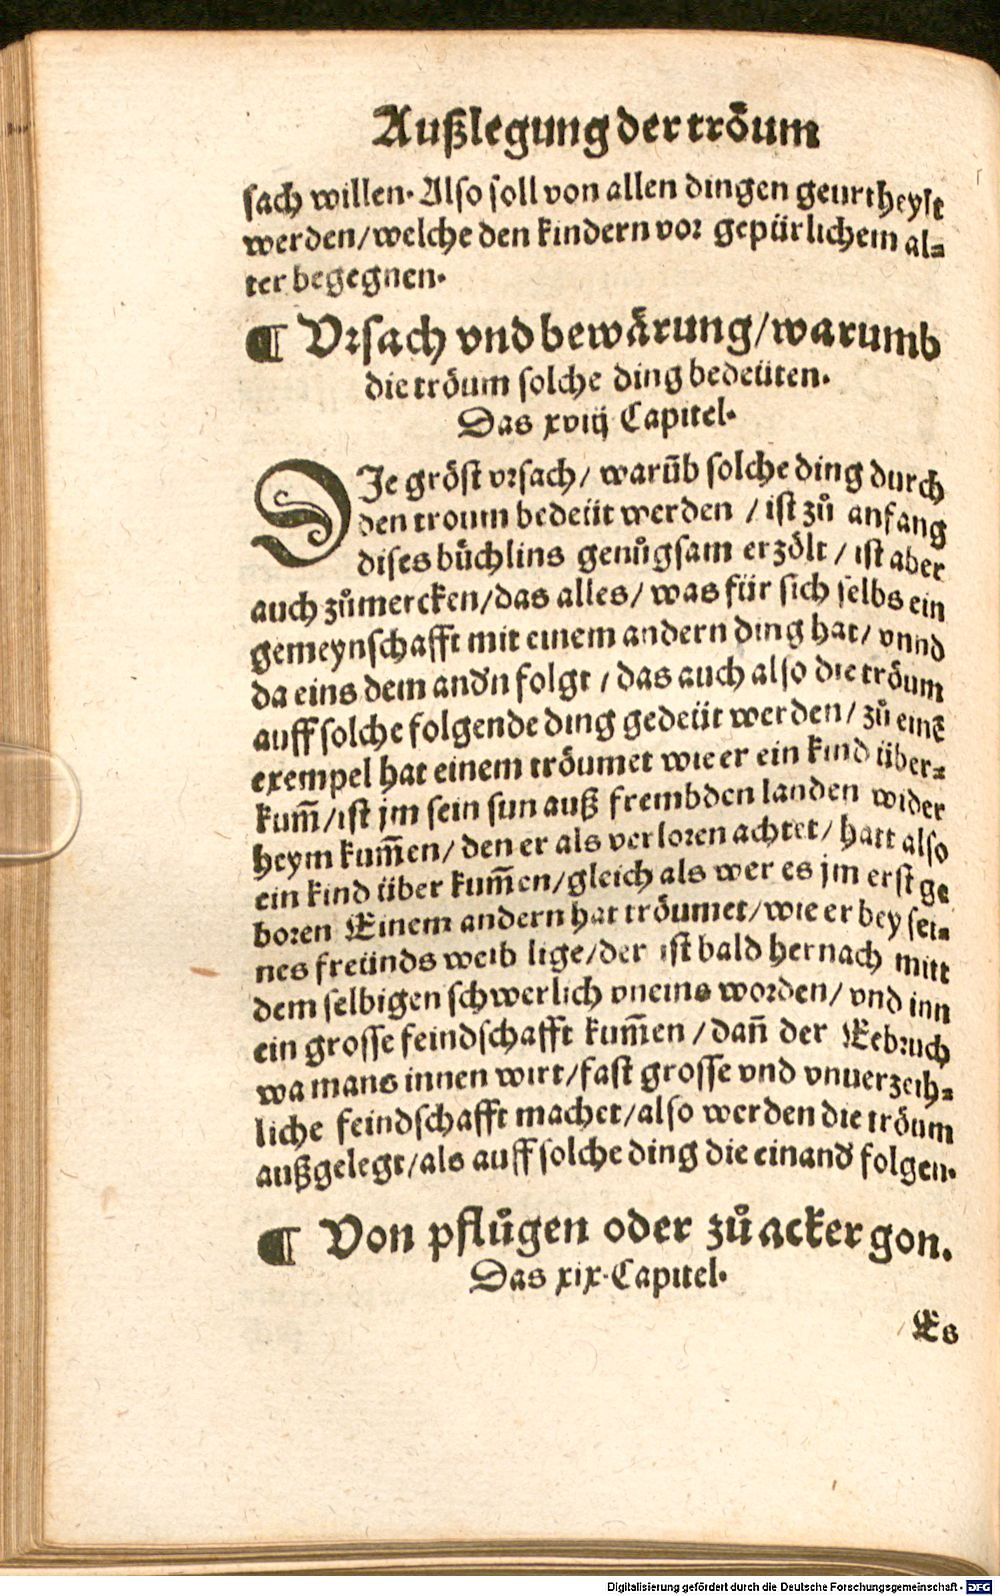 Außlegung der tröum
sach willen. Also soll von allen dingen geurtheylt
werden/welche den kindern vor gepürlichem al⸗
ter begegnen.
¶ Vrsach vnd bewärung/warumb
die tröum solche ding bedeüten.
Das xviij Capitel.
DJe gröst vrsach/ warūb solche ding durch
den troum bedeüt werden / ist zů anfang
dises büchlins genůgsam erzölt / ist aber
auch zůmercken/das alles/ was für sich selbs ein
gemeynschafft mit einem andern ding hat/ vnnd
da eins dem andn folgt / das auch also die tröum
auff solche folgende ding gedeüt werden/ zů einē
exempel hat einem tröumet wie er ein kind über⸗
kum̄/ist jm sein sun auß frembden landen wider
heym kum̄en/ den er als verloren achtet/ hatt also
ein kind über kum̄en/gleich als wer es jm erst ge
boren Einem andern hat tröumet/wie er bey sei⸗
nes freünds weib lige/der ist bald hernach mitt
dem selbigen schwerlich vneins worden/ vnd inn
ein grosse feindschafft kum̄en /dañ der Eebruch
wa mans innen wirt/fast grosse vnd vnuerzeih⸗
liche feindschafft machet/also werden die tröum
außgelegt/als auff solche ding die einand folgen.
¶ Von pflůgen oder zů acker gon.
Das xix. Capitel.
Es
Digitalisierung gefördert durch die Deutsche Forschungsgemeinschaft - DFG